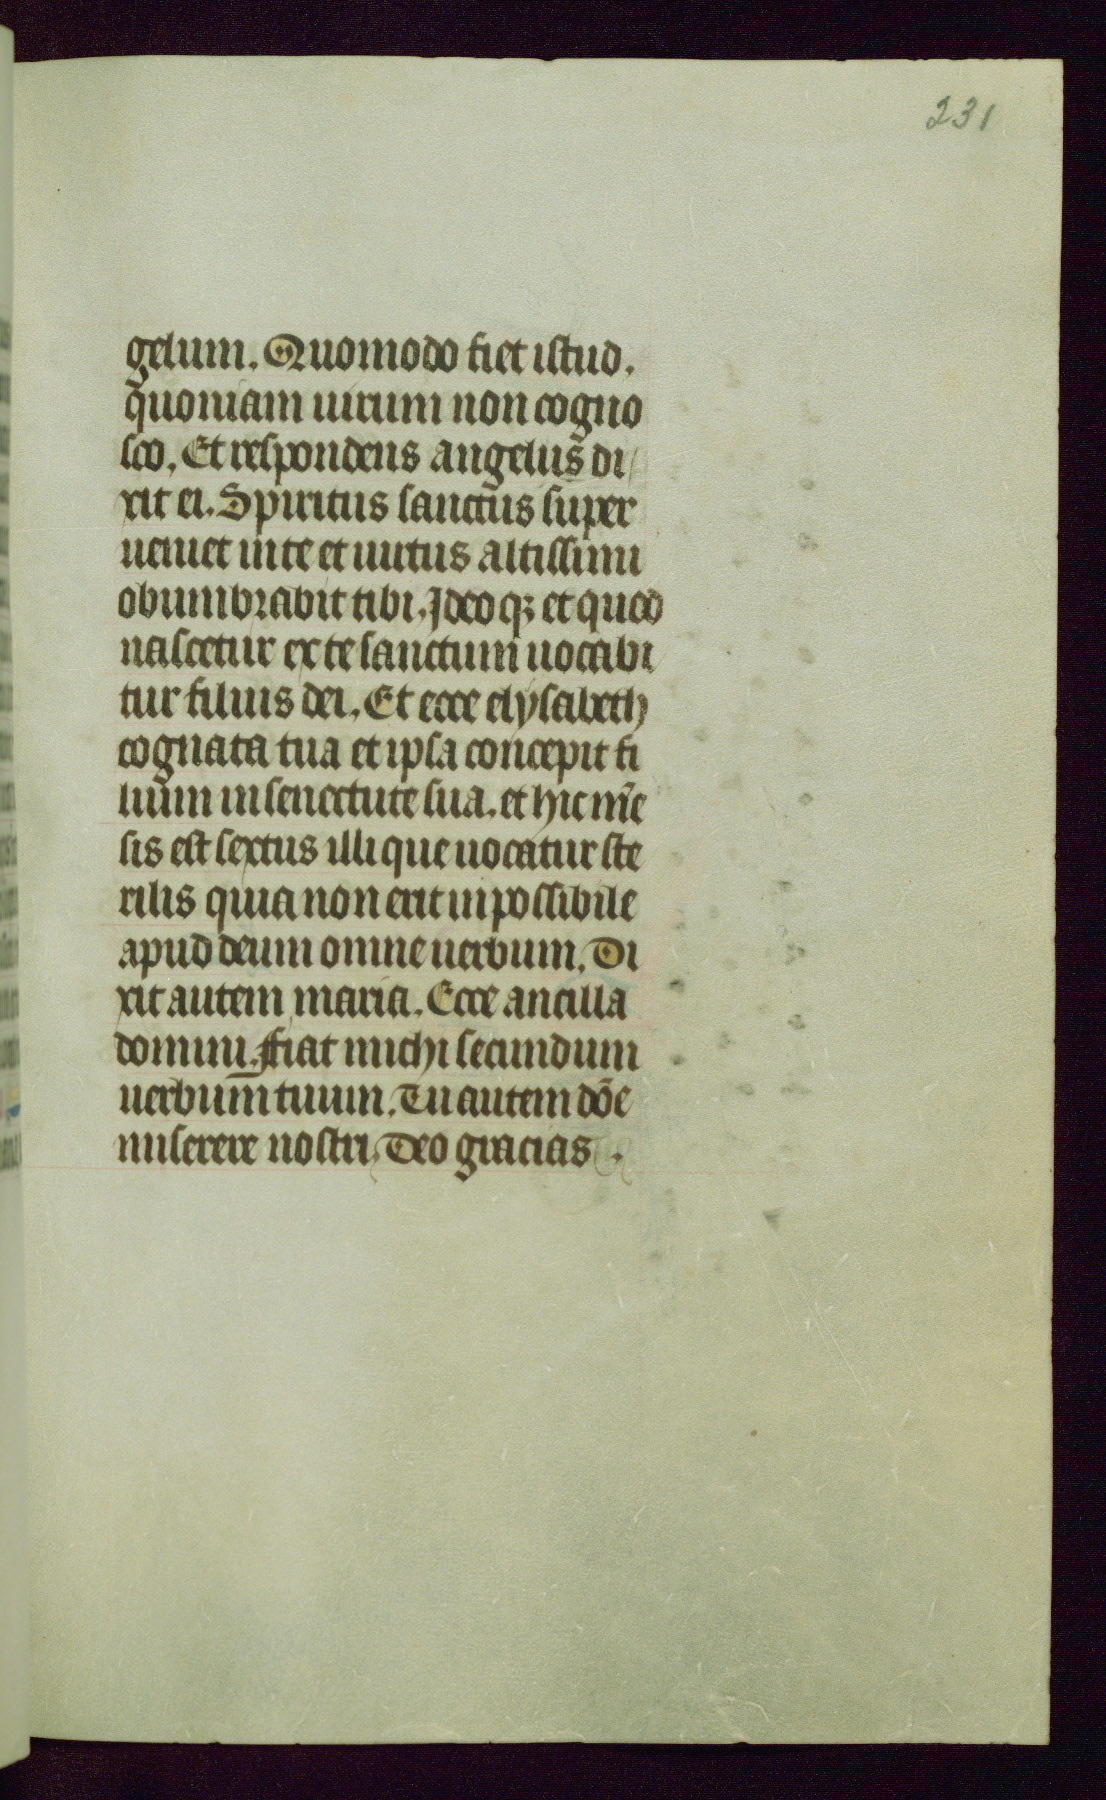 231
gelum. Quomodo fiet istud.
quoniam uirum non cogno
sco. Et respondens angelus di
xit ei. Spiritus sanctus super
ueniet in te et uirtus altissimi
obumbrabit tibi. Ideoq; et quod
nascetur ex te sanctum uocabi
tur filius dei. Et ecce elysabeth
cognata tua et ipsa concepit fi
lium in senectute sua. et hic mē
sis est sextus illi que uocatur ste
rilis quia non erit inpossibile
apud deum omne uerbum. Di
xit autem maria. Ecce ancilla
domini. Fiat michi secundum
uerbum tuum. Tu autem dōe
miserere nostri. Deo gracias.